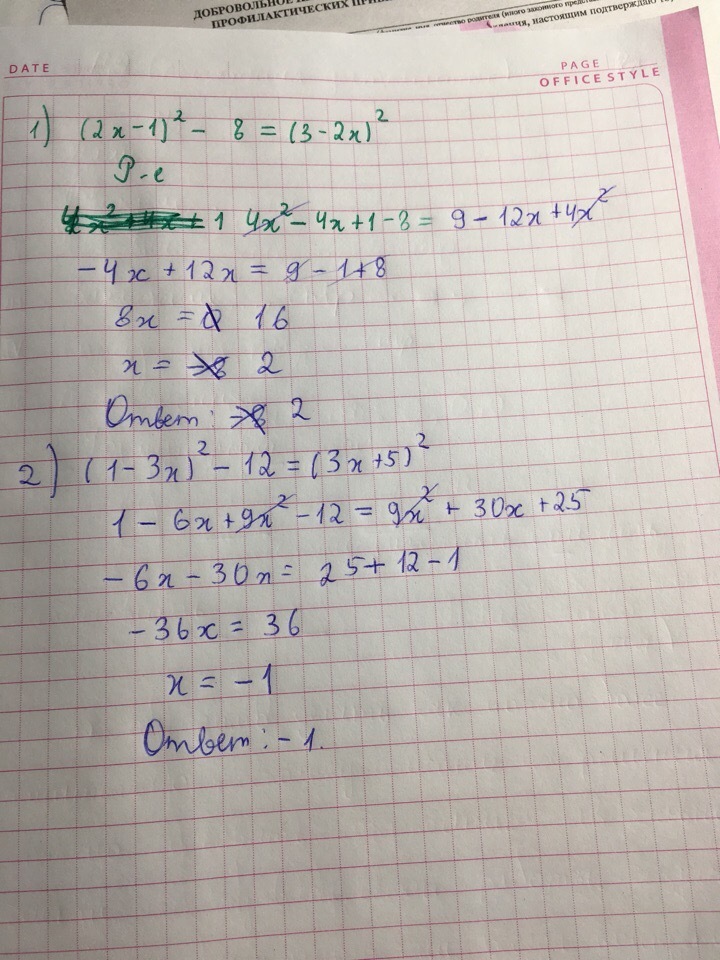 ДОБРОВОЛЬНОЕ
ПРОФИЛАКТИЧЕСКИХ
отчество родителя (иного законного
настоящим подтверждаю
DATE
PAGE
OFFICE STYLE
1) (2x-1)² - 8 = (3-2x)²
Р-е
4x² + 4x + 1 4x² - 4x + 1 - 8 = 9 - 12x + 4x²
-4x + 12x = 9 - 1 + 8
8x = 16
x = 2
Ответ: 2
2) (1-3x)² - 12 = (3x+5)²
1 - 6x + 9x² - 12 = 9x² + 30x + 25
-6x - 30x = 25 + 12 - 1
-36x = 36
x = -1
Ответ: -1.